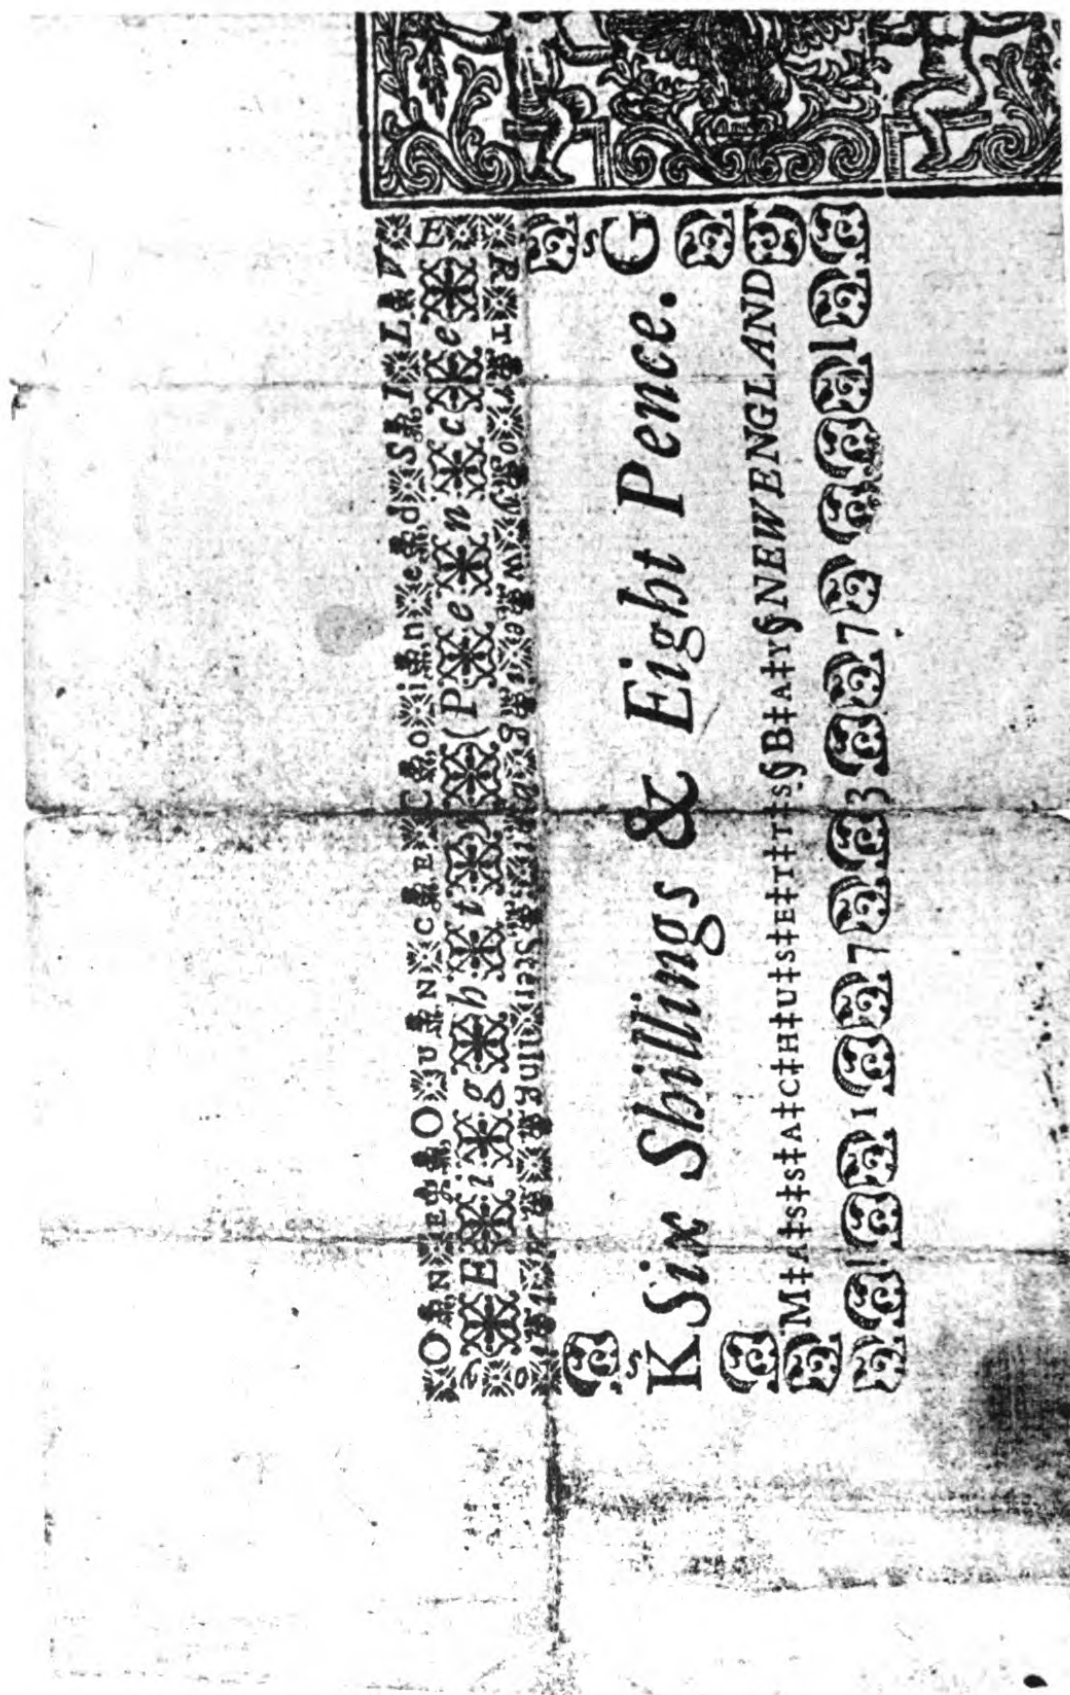 ONE OUNCE Coined SILV
a Eight) (Pence E
o Sterling Weight Troy R
K Six Shillings & Eight Pence. G
M‡A‡S‡S‡A‡C‡H‡U‡S‡E‡T‡T‡S§B‡A‡Y§NEWENGLAND
1737